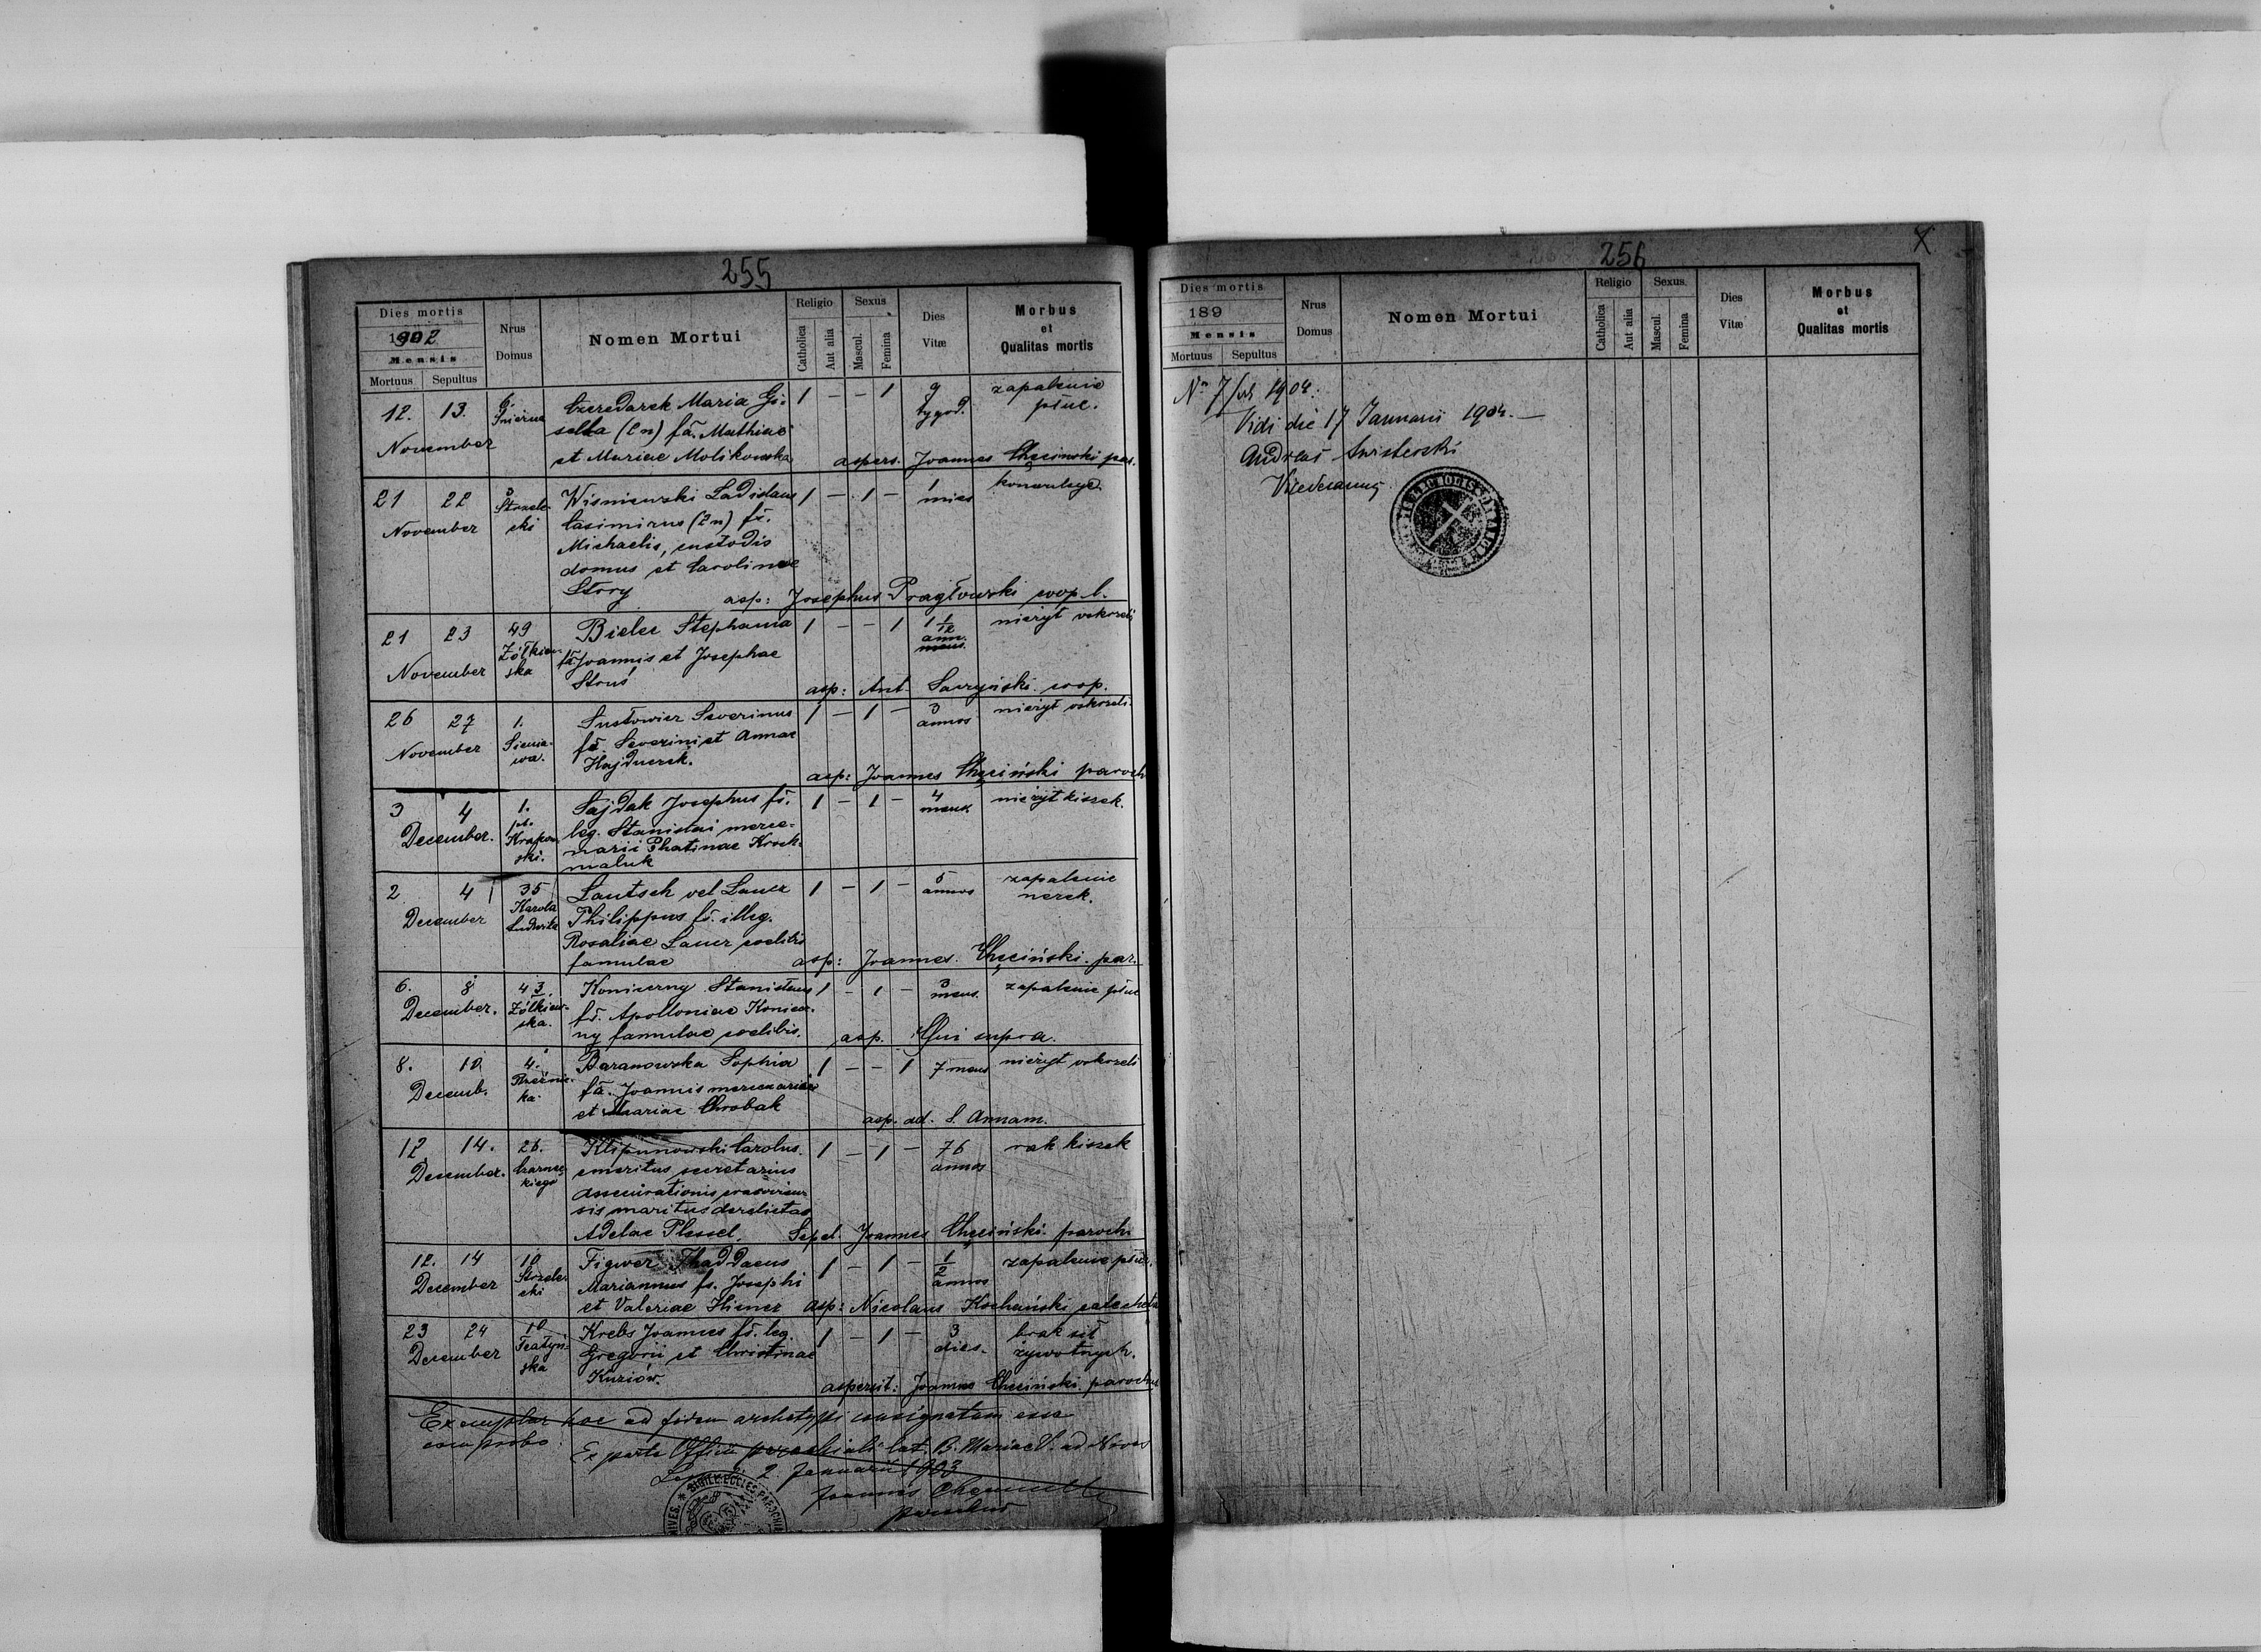 255
Dies mortis
1902
Mensis
Mortuus Sepultus
Nrus
Domus
Nomen Mortui
Religio
Catholica
Aut alia
Sexus
Mascul.
Femina
Dies
Vitæ
Morbus
et
Qualitas mortis
12. 13. 6. Czeredarek Maria Gi- 1 — — 1 9 zapalenie
Śnieżna sella (2 n) fa. Mathiae tygod. płuc.
November et Mariae Molikowska
aspers. Joannes Chęciński par.
21 22 3 Wiśniewski Ladislaus 1 — 1 — 1 konwulsye.
November Strzele- Casimirus (2 n) fs. mies
cki Michaelis, custodis
domus et Carolinae
Story
asp: Josephus Pragłowski coop. l.
21 23 49 Bielec Stephania 1 — — 1 1 1/12 nieżyt oskrzeli
November Żółkiew- fa Joannis et Josephae ann.
ska Struś
asp: Ant. coop.
26 27 1. Susłowicz Severinus 1 — 1 — 3 nieżyt oskrzeli
November Sienia- fs. Severini et Annae annos
wa. Hajduczek.
asp: Joannes Chęciński paroch
3 4 1. Sajdak Josephus fs. 1 — 1 — 4 nieżyt kiszek.
December. pl. leg. Stanislai merce- mens.
Krakow- narii Phatinae Kroch-
ski. maluk
2 4 35 Lautsch vel Lauer 1 — 1 — 5 zapalenie
December Karola Philippus fs. illeg. annos nerek.
Ludwika Rosaliae Lauer coelibis
famulae
asp: Joannes Chęciński par.
6. 8 43. Konieczny Stanislaus 1 — 1 — 3 zapalenie płuc
December. Żółkiew- fs. Apolloniae Koniecz- mens.
ska. ny famulae coelibis.
asp. Qui supra.
8. 10 4. Baranowska Sophia 1 — — 1 7 mens nieżyt oskrzeli
Decemb. Rzeźnic- fa. Joannis mercenarii
ka. et Mariae Chrobak
asp. ad. S. Annam.
12. 14. 26. Klipunowski Carolus. 1 — 1 — 76 rak kiszek
December. Czarnec- emeritus secretarius annos
kiego assecurationis cracovien-
sis maritus derelictae
Adelae Plessel.
Sepel. Joannes Chęciński paroch.
12. 14 10 Figwer Thaddaeus 1 — 1 — 1/2 zapalenie płuc.
December Strzele- Mariannus fs. Josephi annos
cki et Valeriae Hiener
asp: Nicolaus Kochański catecheta
23 24 10 Krebs Joannes fs. leg. 1 — 1 — 3 brak sił
December Teatyń- Gregorii et Christinae dies. żywotnych.
ska Kuziów.
aspersit: Joannes Chęciński parochus
Exemplar hoc ad fidem archetypi consignatum esse
comprobo.
Ex parte Officii parochialis lat. B. Mariae V. ad Nives
2 Januarii 1903
Joannes Chęciński
parochus
NIVES. * SIGILL. ECCLES. PAROCHIA
256
X
Dies mortis
189
Mensis
Mortuus Sepultus
Nrus
Domus
Nomen Mortui
Religio
Catholica
Aut alia
Sexus.
Mascul.
Femina
Dies
Vitæ
Morbus
et
Qualitas mortis
No 7 1904.
Vidi die 17 Januarii 1904.—
Andreas
Vicedecanus